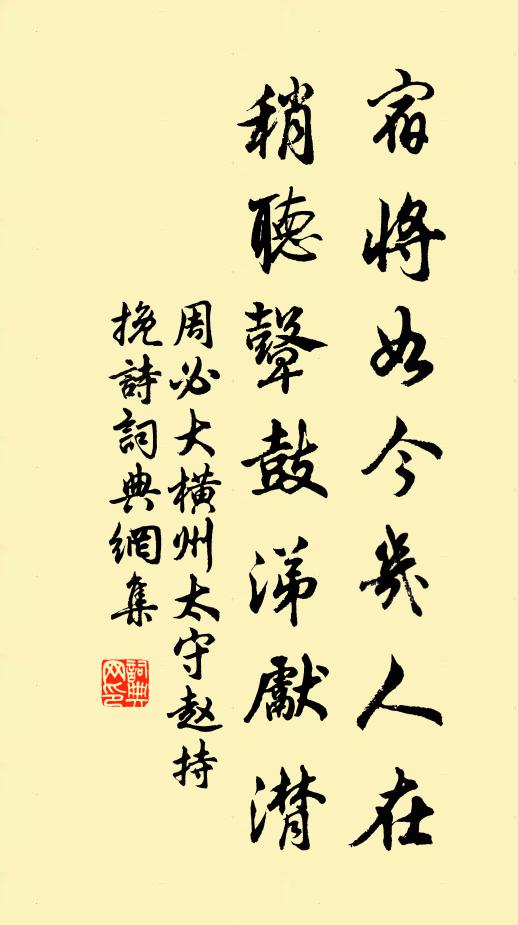 宿將如今幾人在
稍聽鼙鼓涕獻潸
周必大橫州太守赵持
挽詩詞典網集
詞典
网印